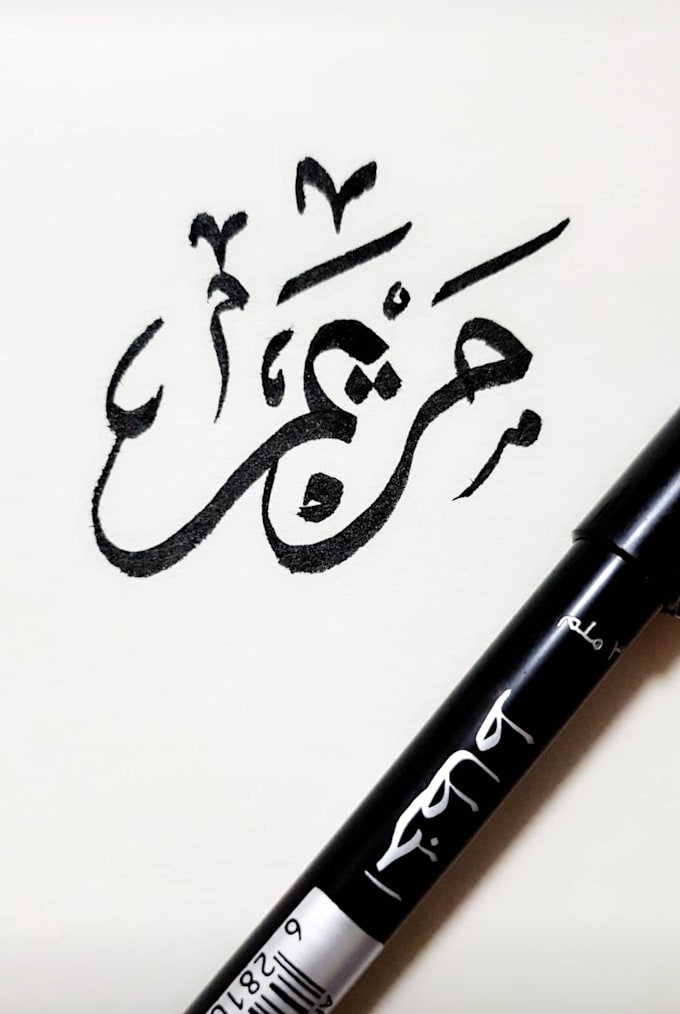 مريم
ملم
الخطاط
6 2810